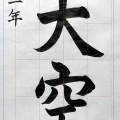 大空
一年